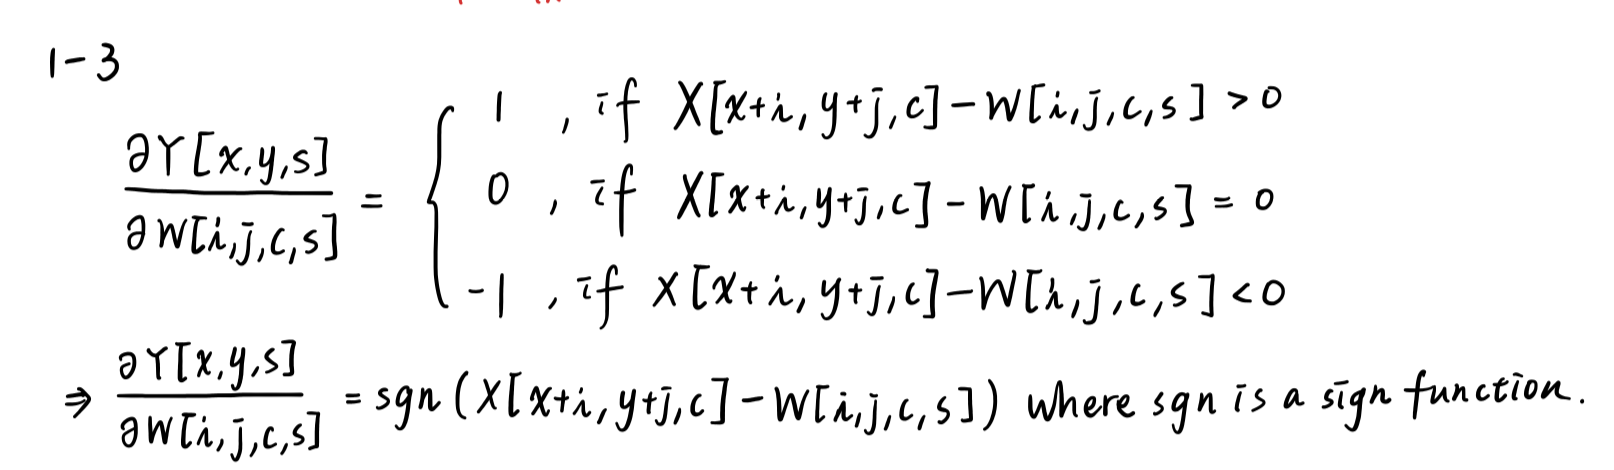 1-3
∂Y[x,y,s] / ∂W[i,j,c,s] = { 1 , if X[x+i, y+j, c] - W[i,j,c,s] > 0
0 , if X[x+i, y+j, c] - W[i,j,c,s] = 0
-1 , if X[x+i, y+j, c] - W[i,j,c,s] < 0
⇒ ∂Y[x,y,s] / ∂W[i,j,c,s] = sgn (X[x+i, y+j, c] - W[i,j,c,s]) where sgn is a sign function.